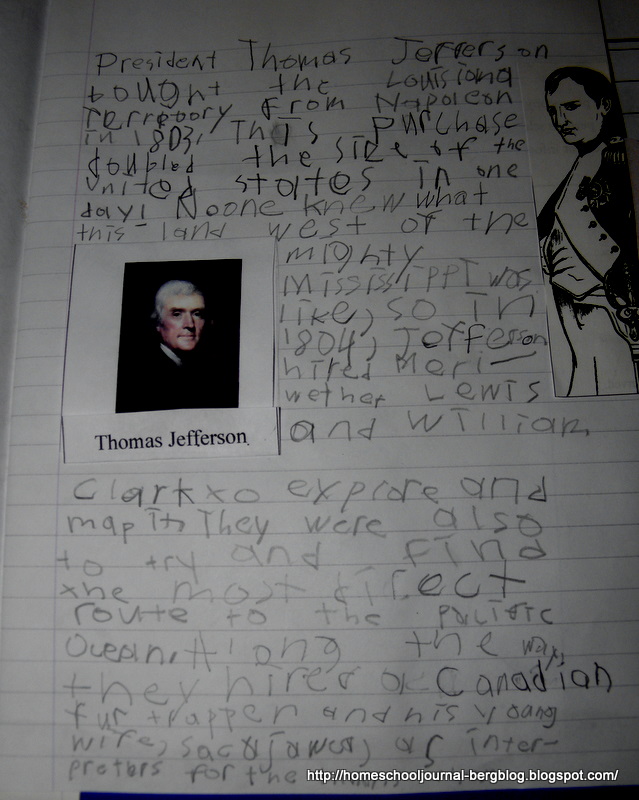 President Thomas Jefferson
bought the Louisiana
Terretory from Napoleon
in 1803, This purchase
doubled the size of the
United states in one
day! No one knew what
this land west of the
mighty
Mississippi was
like, so in
1804, Jefferson
hired Meri-
wether Lewis
and William
Thomas Jefferson
Clark to explore and
map it. They were also
to try and find
the most direct
route to the pacific
Ocean. Along the way,
they hired a Canadian
fur trapper and his young
wife, sacajawea, as inter-
preters for the
http://homeschooljournal-bergblog.blogspot.com/